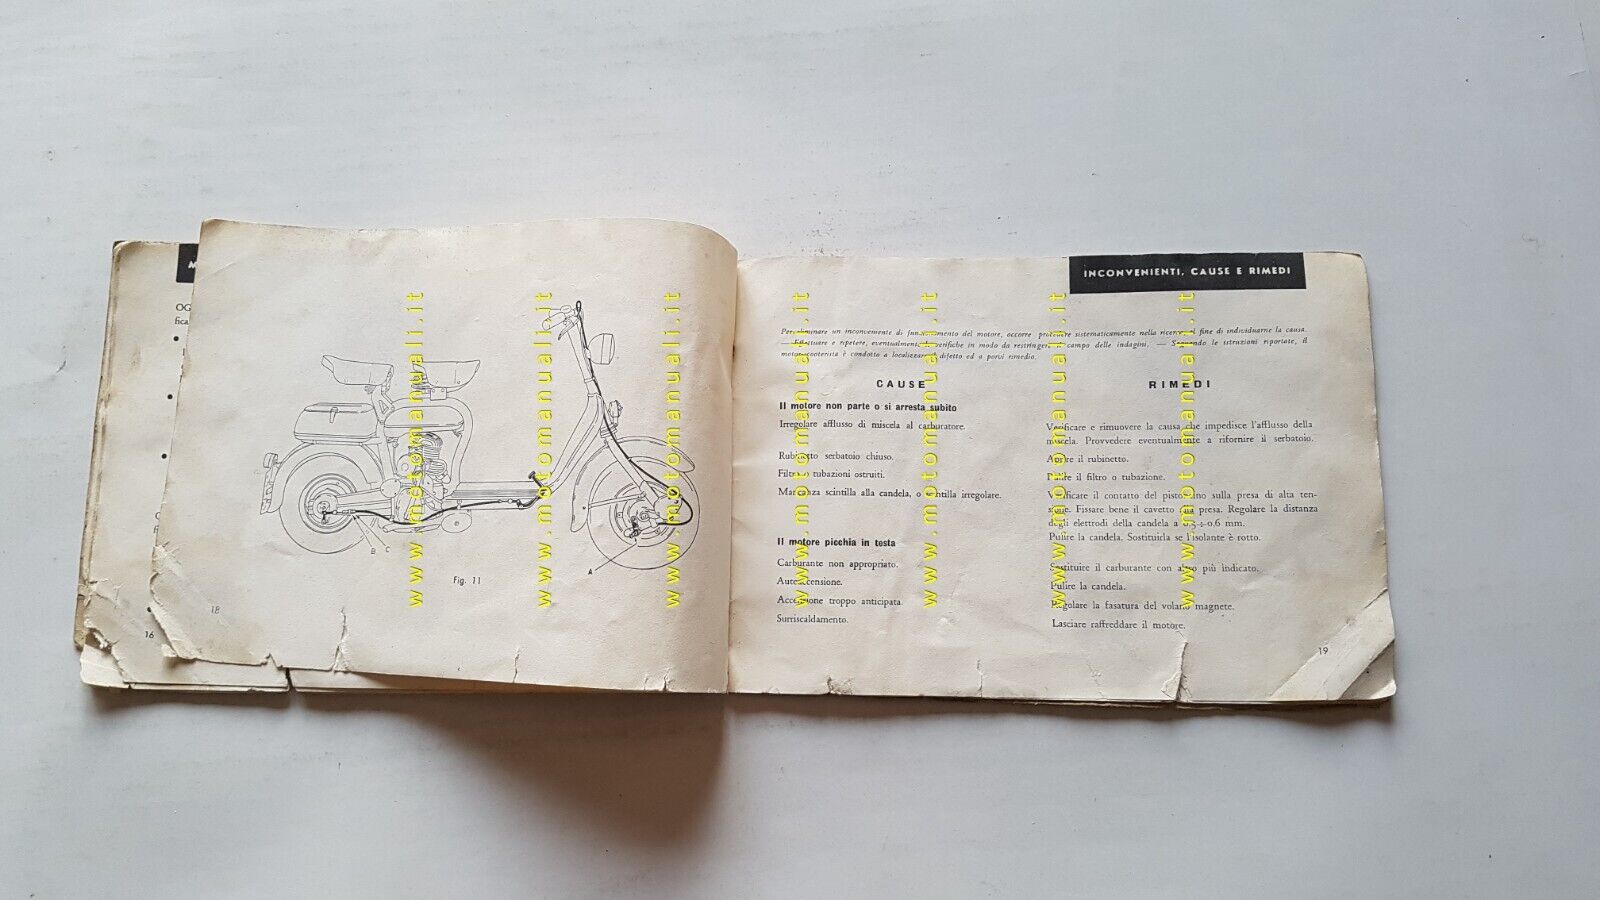 M
OG
fica
16
A
B
C
Fig. 11
18
INCONVENIENTI, CAUSE E RIMEDI
Per eliminare un inconveniente di funzionamento del motore, occorre procedere sistematicamente nella ricerca al fine di individuarne la causa.
— Effettuare e ripetere, eventualmente le verifiche in modo da restringere il campo delle indagini. — Seguendo le istruzioni riportate, il
motoscooterista è condotto a localizzare il difetto ed a porvi rimedio.
CAUSE
RIMEDI
Il motore non parte o si arresta subito
Irregolare afflusso di miscela al carburatore.
Verificare e rimuovere la causa che impedisce l'afflusso della
miscela. Provvedere eventualmente a rifornire il serbatoio.
Rubinetto serbatoio chiuso.
Aprire il rubinetto.
Filtri o tubazioni ostruiti.
Pulire il filtro o tubazione.
Mancanza scintilla alla candela, o scintilla irregolare.
Verificare il contatto del pistoncino sulla presa di alta ten-
sione. Fissare bene il cavetto alla presa. Regolare la distanza
degli elettrodi della candela a 0,5÷0,6 mm.
Pulire la candela. Sostituirla se l'isolante è rotto.
Il motore picchia in testa
Carburante non appropriato.
Sostituire il carburante con altro più indicato.
Autoaccensione.
Pulire la candela.
Accensione troppo anticipata.
Regolare la fasatura del volano magnete.
Surriscaldamento.
Lasciare raffreddare il motore.
19
www.motomanuali.it
www.motomanuali.it
www.motomanuali.it
www.motomanuali.it
www.motomanuali.it
www.motomanuali.it
www.motomanuali.it